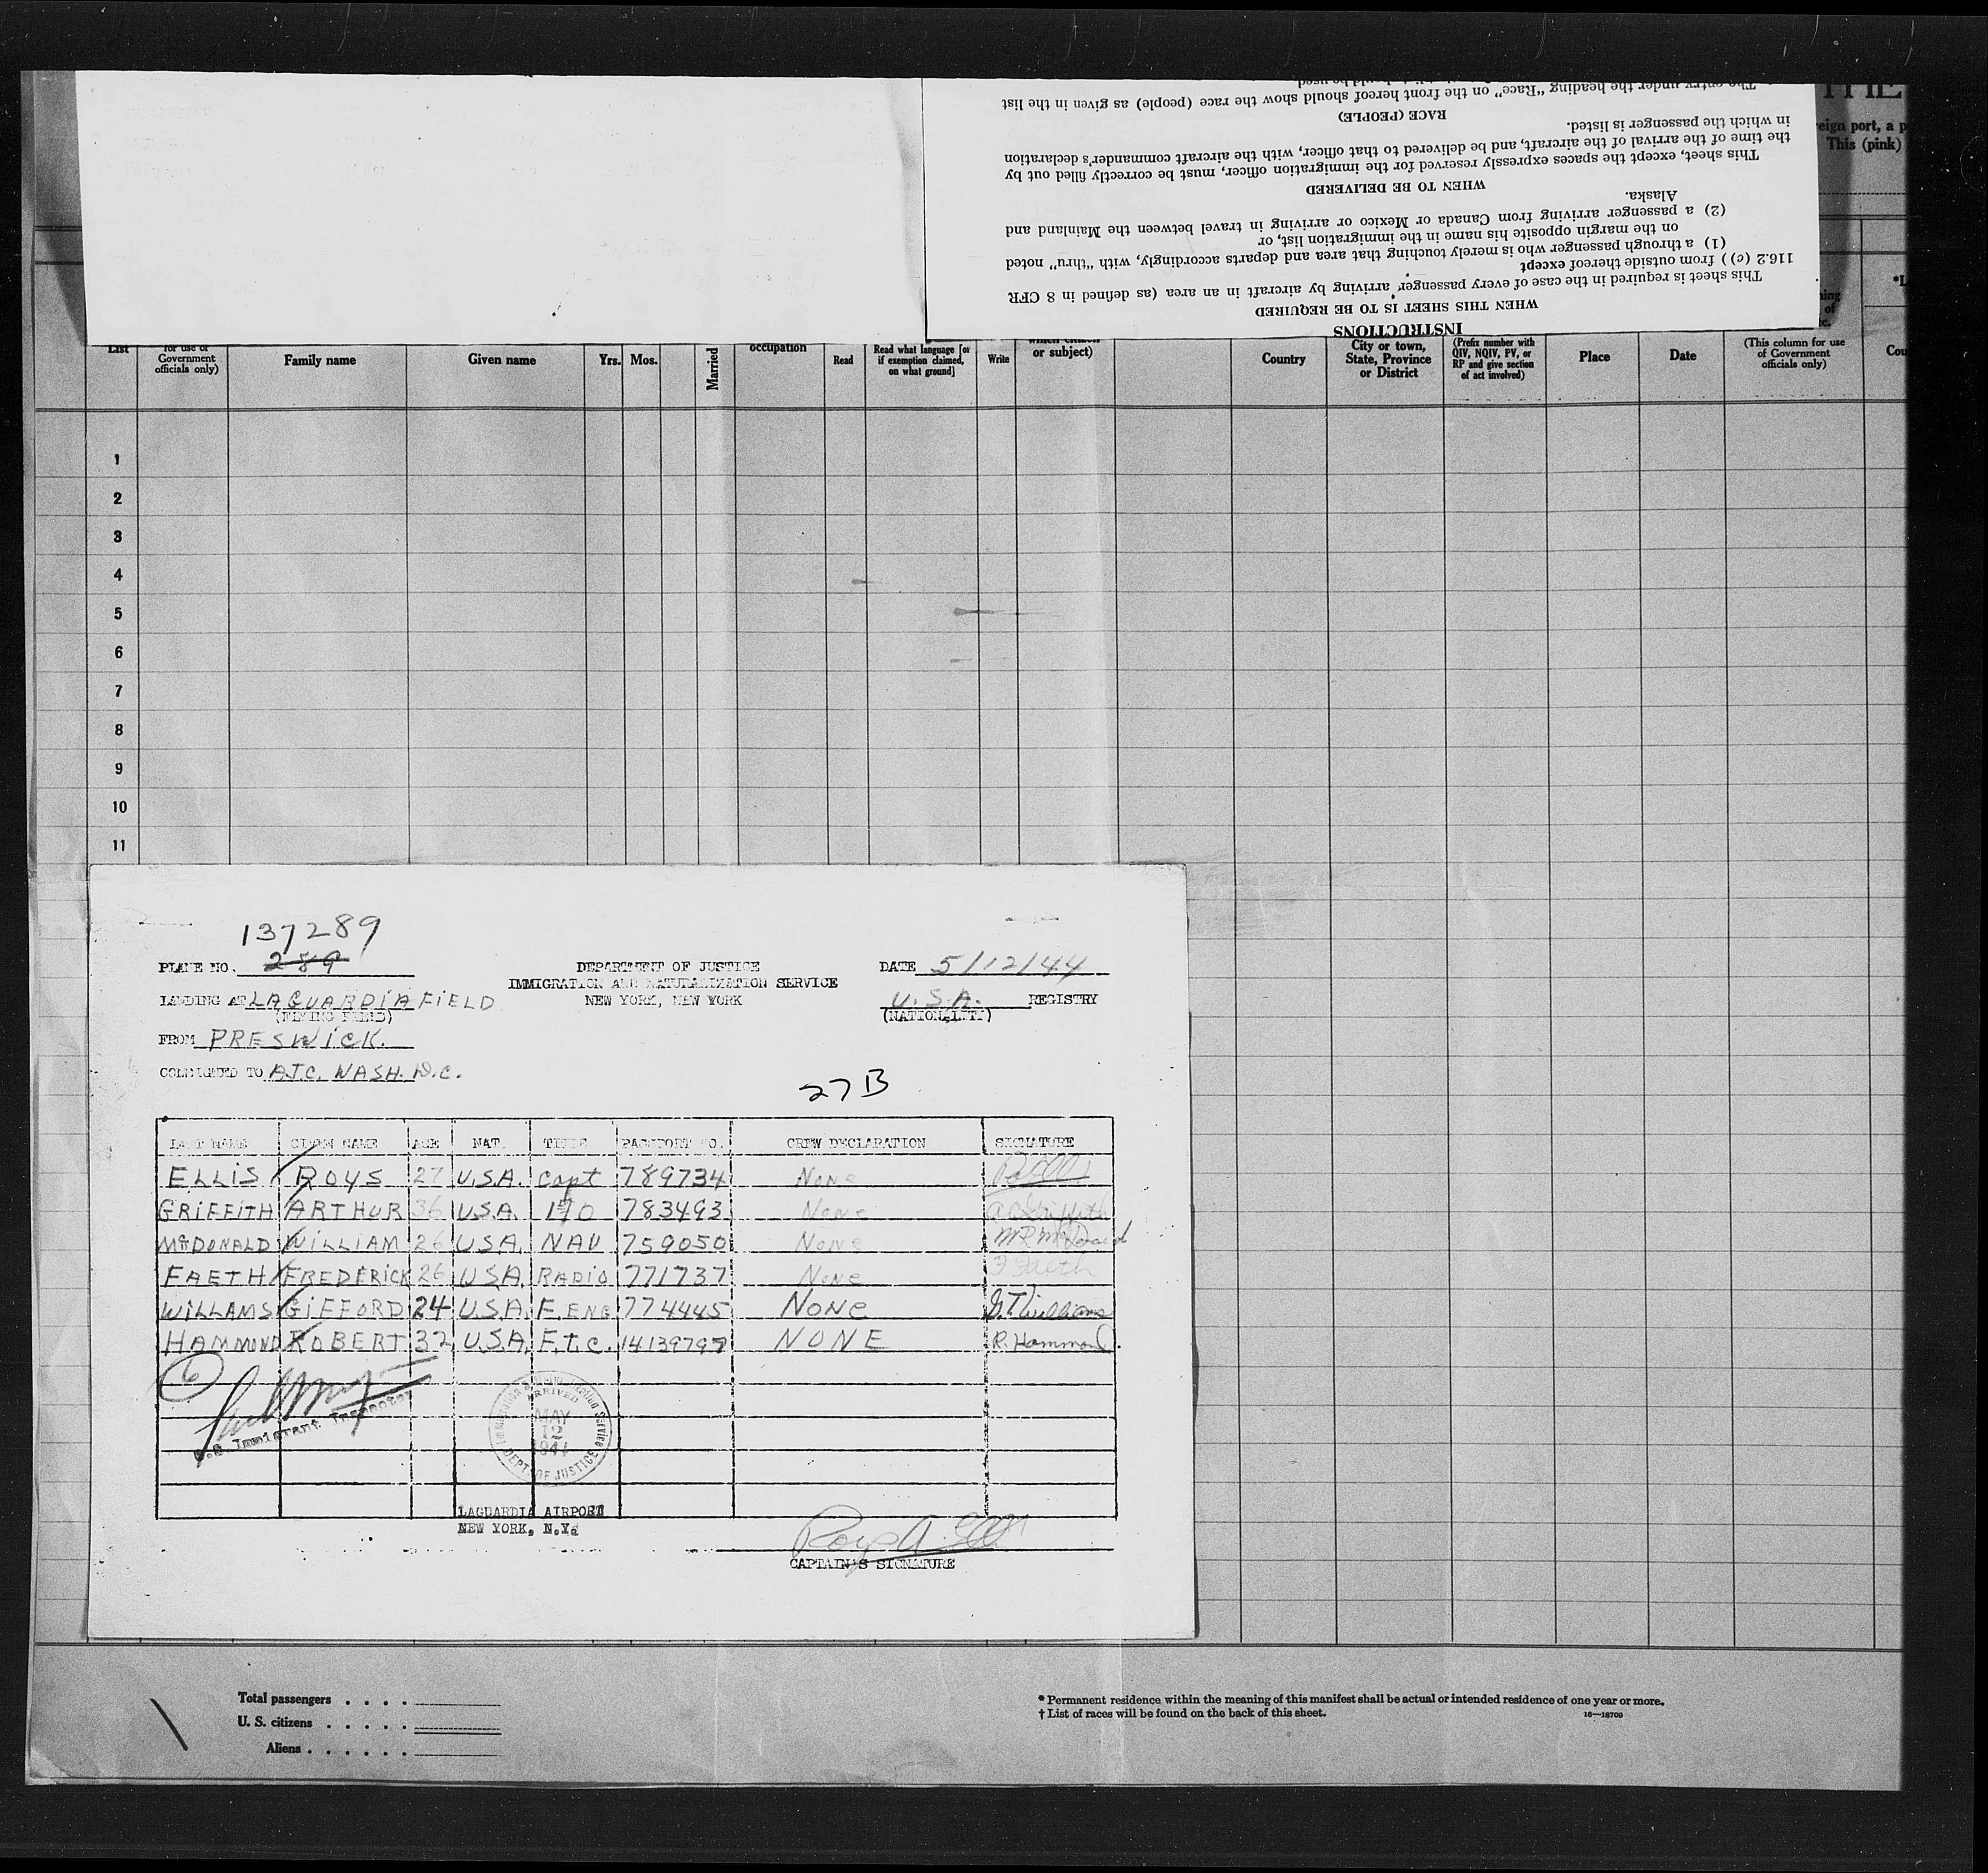 THE
eign port, a p
This (pink)
INSTRUCTIONS
WHEN THIS SHEET IS TO BE REQUIRED
This sheet is required in the case of every passenger arriving by aircraft in an area (as defined in 8 CFR
116.2 (c)) from outside thereof except
(1) a through passenger who is merely touching that area and departs accordingly, with "thru" noted
on the margin opposite his name in the immigration list, or
(2) a passenger arriving from Canada or Mexico or arriving in travel between the Mainland and
Alaska.
WHEN TO BE DELIVERED
This sheet, except the spaces expressly reserved for the immigration officer, must be correctly filled out by
the time of the arrival of the aircraft, and be delivered to that officer, with the aircraft commander's declaration
in which the passenger is listed.
RACE (PEOPLE)
The entry under the heading "Race" on the front hereof should show the race (people) as given in the list
List
for use of Government officials only)
Family name
Given name
Yrs.
Mos.
Married
occupation
Read
Read what language [or if exemption claimed, on what ground]
Write
which citizen or subject)
Country
City or town, State, Province or District
(Prefix number with QIV, NQIV, PV, or RP and give section of act involved)
Place
Date
(This column for use of Government officials only)
Cou
1
2
3
4
5
6
7
8
9
10
11
137289
PLANE NO. 289
DEPARTMENT OF JUSTICE
DATE 5/12/44
IMMIGRATION AND NATURALIZATION SERVICE
LANDING AT LAGUARDIA FIELD
NEW YORK, NEW YORK
U.S.A. REGISTRY
(FLYING FIELD)
(NATIONALITY)
FROM PRESWICK.
CONSIGNED TO A.T.C. WASH. D.C.
27B
LAST NAME GIVEN NAME AGE NAT. TITLE PASSPORT NO. CREW DECLARATION SIGNATURE
ELLIS ROYS 27 U.S.A. Capt 789734 None
GRIFFITH ARTHUR 36 U.S.A. 1F/O 783493 None A C Griffith
McDONALD WILLIAM 26 U.S.A. NAV 759050 None
FAETH FREDERICK 26 U.S.A. RADIO 771737 None F Faeth
WILLAMS GIFFORD 24 U.S.A. F.ENG 774445 NONE G.T Williams
HAMMOND ROBERT 32 U.S.A. F.T.C. 14139797 NONE R. Hammond.
6
U.S. Immigrant Inspector
Immigration & Naturalization Service
ARRIVED
MAY
12
1944
DEPT. OF JUSTICE
LAGUARDIA AIRPORT
NEW YORK, N.Y.
Roy A. Ellis
CAPTAIN'S SIGNATURE
Total passengers . . . .
U. S. citizens . . . . .
Aliens . . . . . .
* Permanent residence within the meaning of this manifest shall be actual or intended residence of one year or more.
† List of races will be found on the back of this sheet.
16—18709